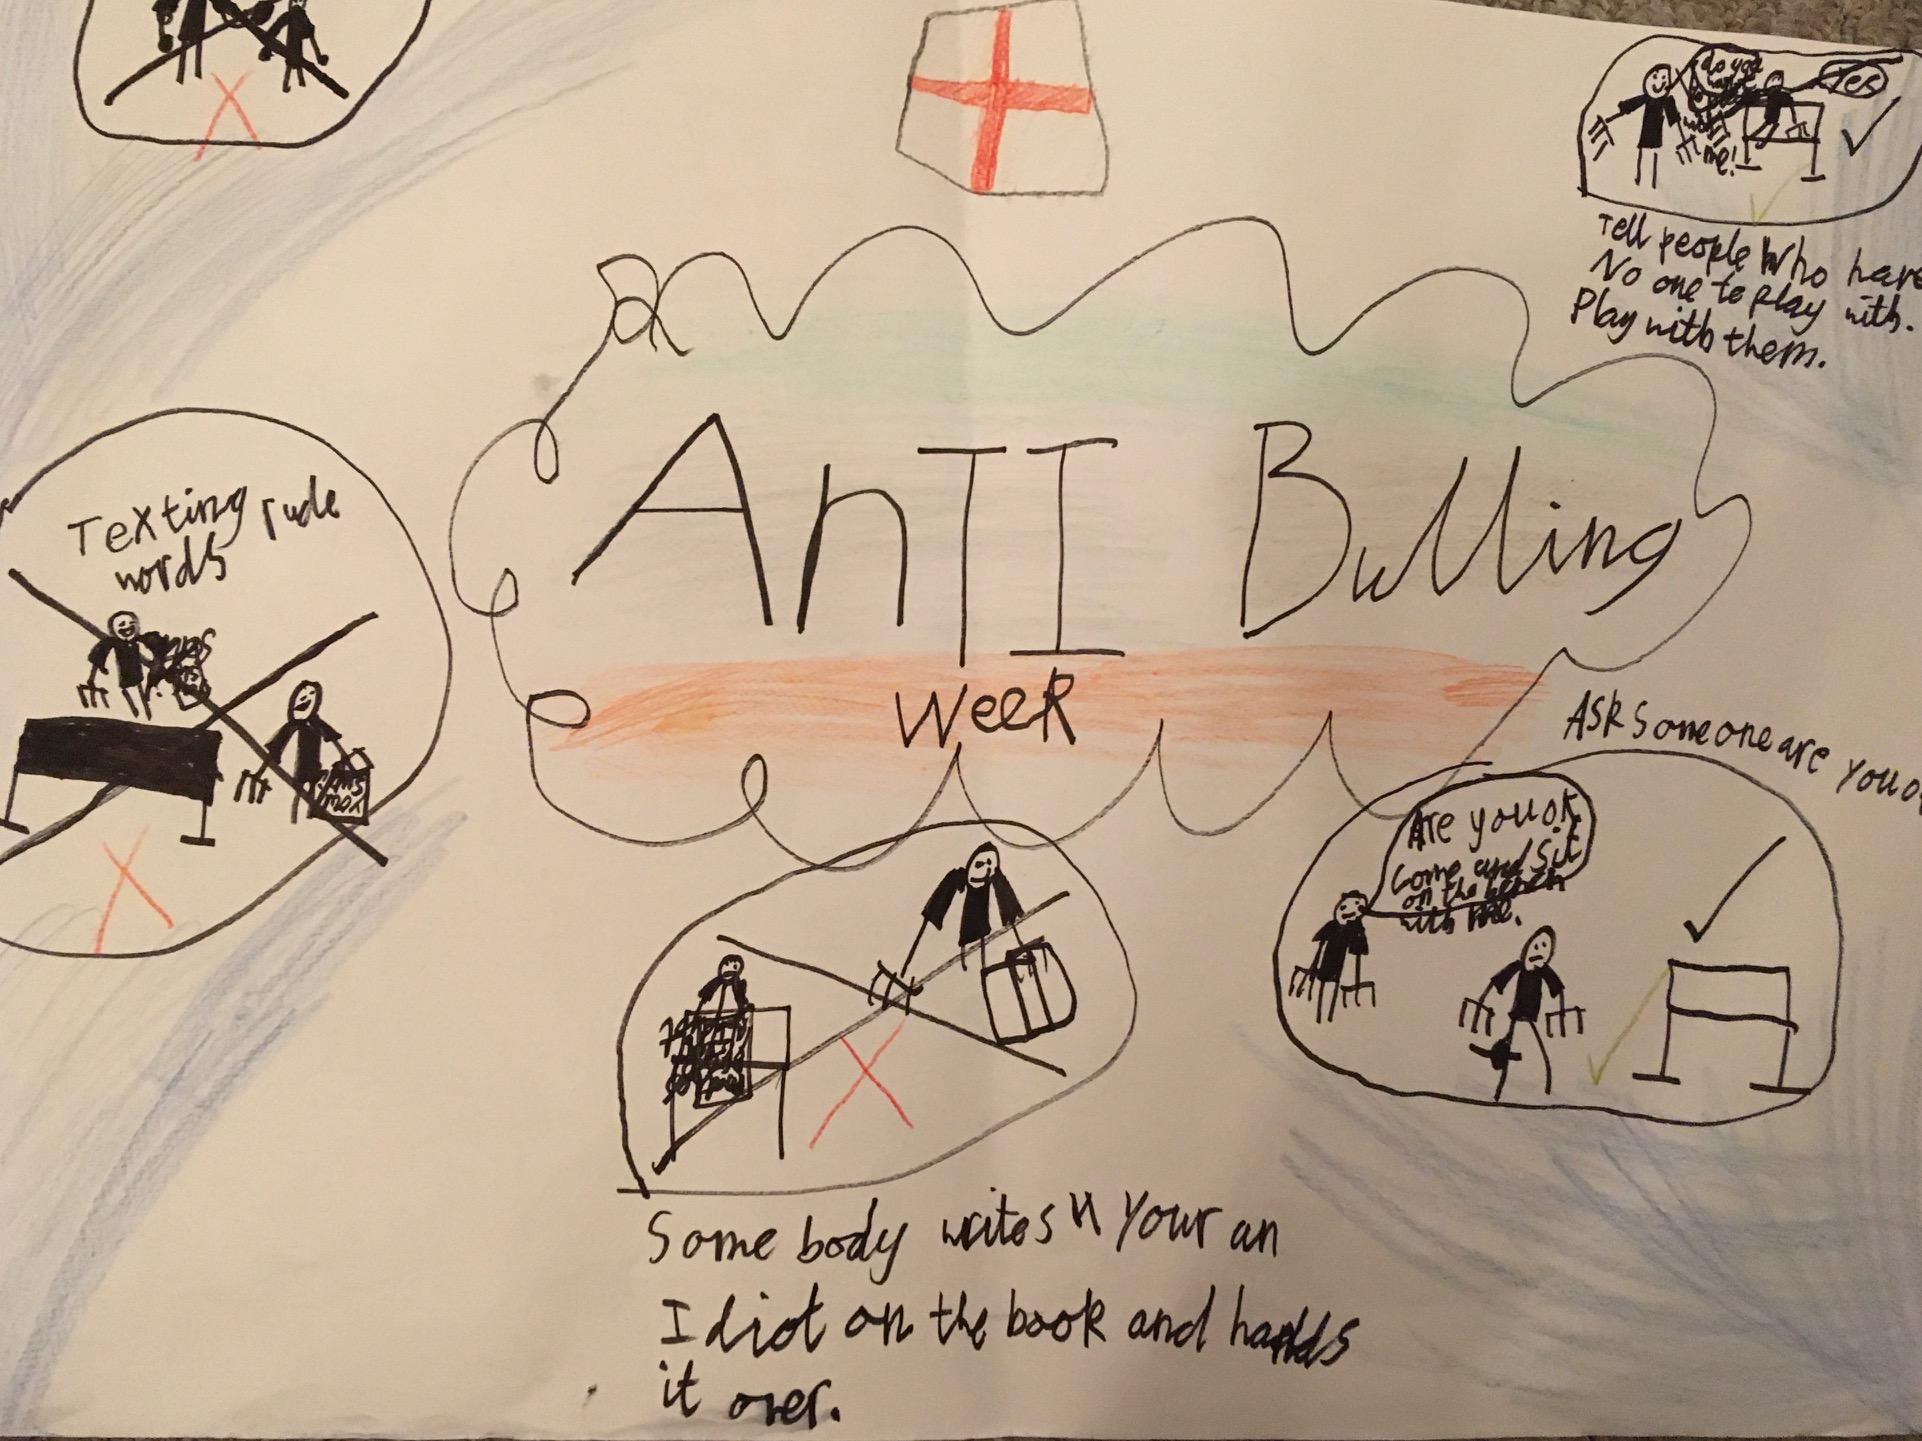 do you
me!
Yes
Tell people who have
No one to play with.
Play with them.
AnTI Bulling
week
Texting rude
words
Ask someone are you
Are you ok
Come and sit
on the bench
with me.
Some body writes " Your an
Idiot on the book and hands
it over.